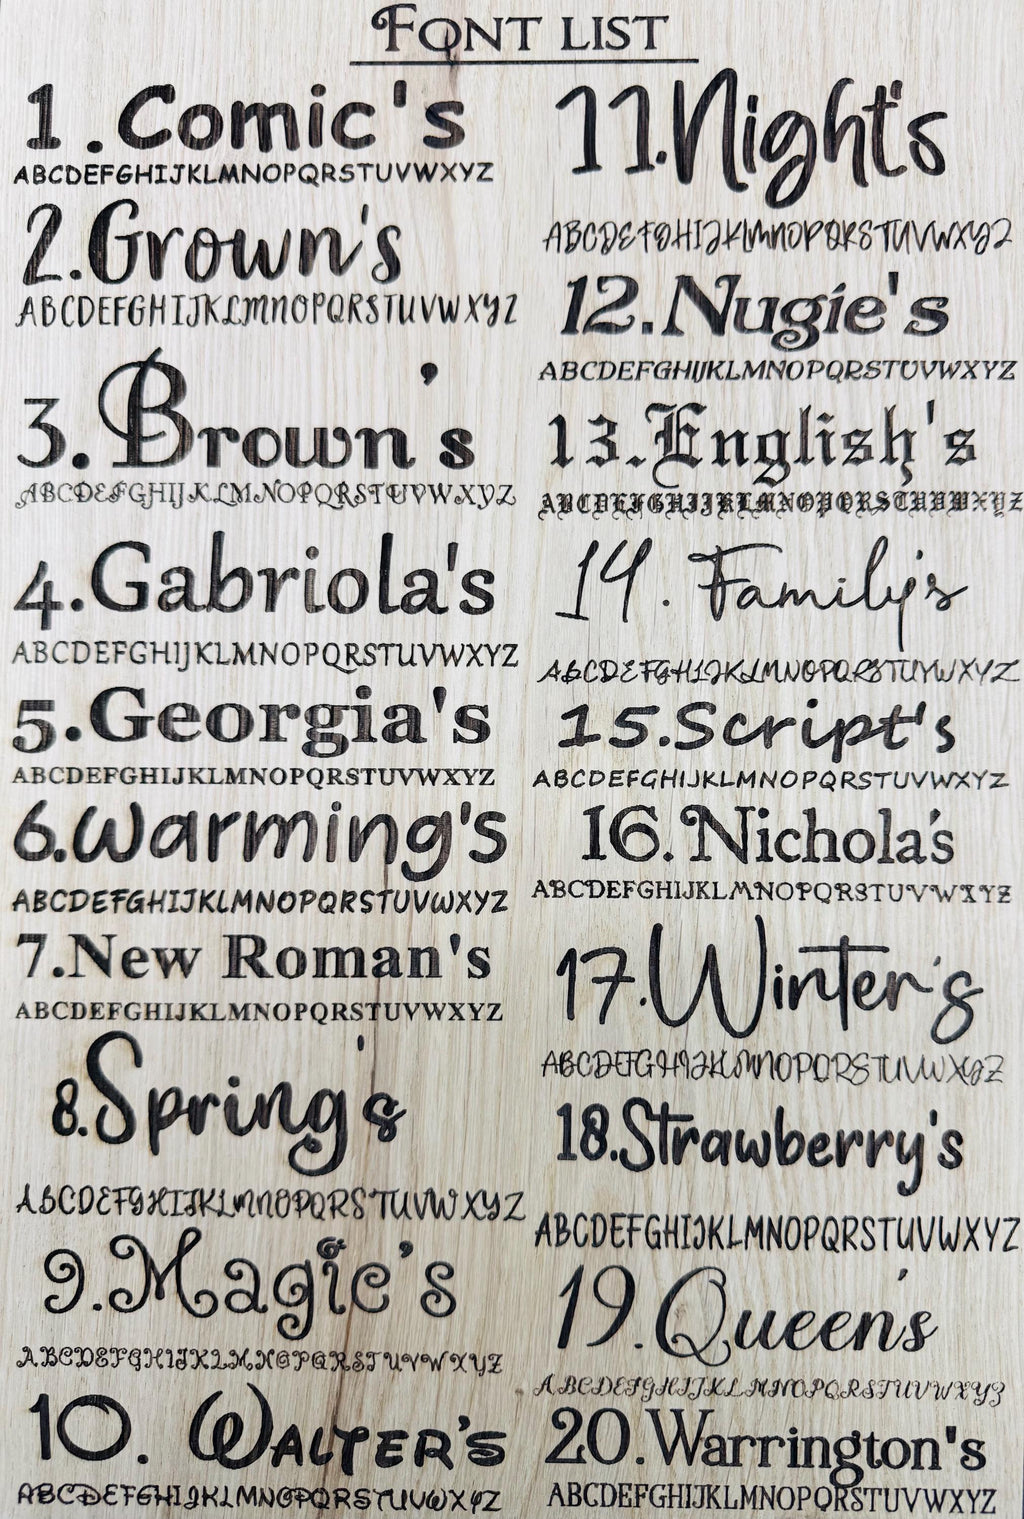 FONT LIST
1. Comic's
ABCDEFGHIJKLMNOPQRSTUVWXYZ
2. Grown's
ABCDEFGHIJKLMNOPQRSTUVWXYZ
3. Brown's
ABCDEFGHIJKLMNOPQRSTUVWXYZ
4. Gabriola's
ABCDEFGHIJKLMNOPQRSTUVWXYZ
5. Georgia's
ABCDEFGHIJKLMNOPQRSTUVWXYZ
6. Warming's
ABCDEFGHIJKLMNOPQRSTUVWXYZ
7. New Roman's
ABCDEFGHIJKLMNOPQRSTUVWXYZ
8. Spring's
ABCDEFGHIJKLMNOPQRSTUVWXYZ
9. Magic's
ABCDEFGHIJKLMNOPQRSTUVWXYZ
10. WALTER'S
ABCDEFGHIJKLMNOPQRSTUVWXYZ
11. Night's
ABCDEFGHIJKLMNOPQRSTUVWXYZ
12. Nugie's
ABCDEFGHIJKLMNOPQRSTUVWXYZ
13. English's
ABCDEFGHIJKLMNOPQRSTUVWXYZ
14. Family's
ABCDEFGHIJKLMNOPQRSTUVWXYZ
15. Script's
ABCDEFGHIJKLMNOPQRSTUVWXYZ
16. Nichola's
ABCDEFGHIJKLMNOPQRSTUVWXYZ
17. Winter's
ABCDEFGHIJKLMNOPQRSTUVWXYZ
18. Strawberry's
ABCDEFGHIJKLMNOPQRSTUVWXYZ
19. Queen's
ABCDEFGHIJKLMNOPQRSTUVWXYZ
20. Warrington's
ABCDEFGHIJKLMNOPQRSTUVWXYZ